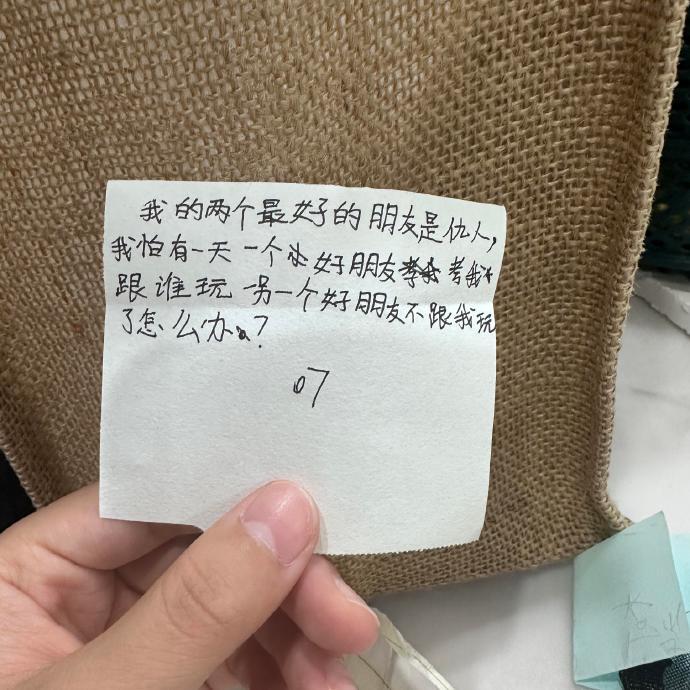 我的两个最好的朋友是仇人,
我怕有一天一个好朋友考我
跟谁玩另一个好朋友不跟我玩
了怎么办。?
07